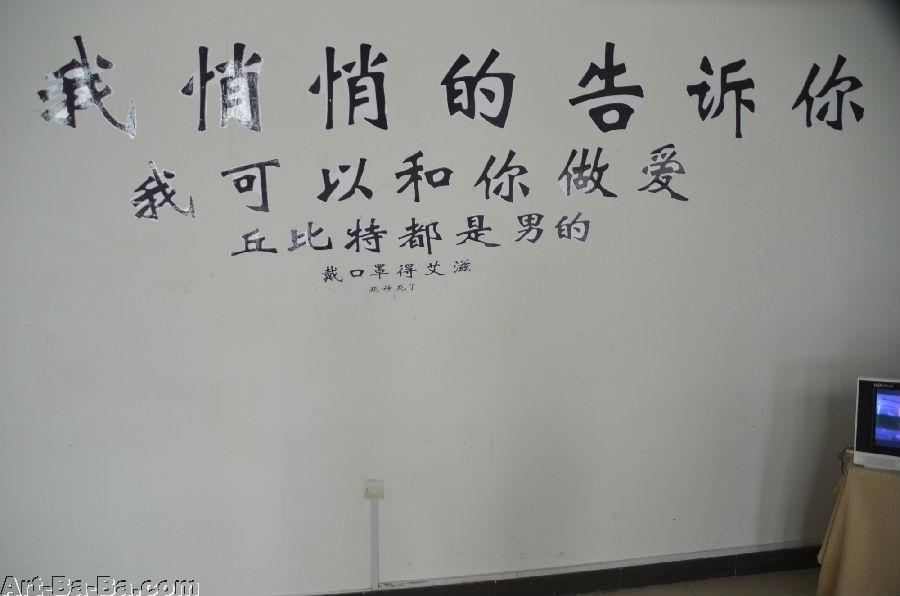 我悄悄的告诉你
我可以和你做爱
丘比特都是男的
戴口罩得艾滋
死了
Art-Ba-Ba.com